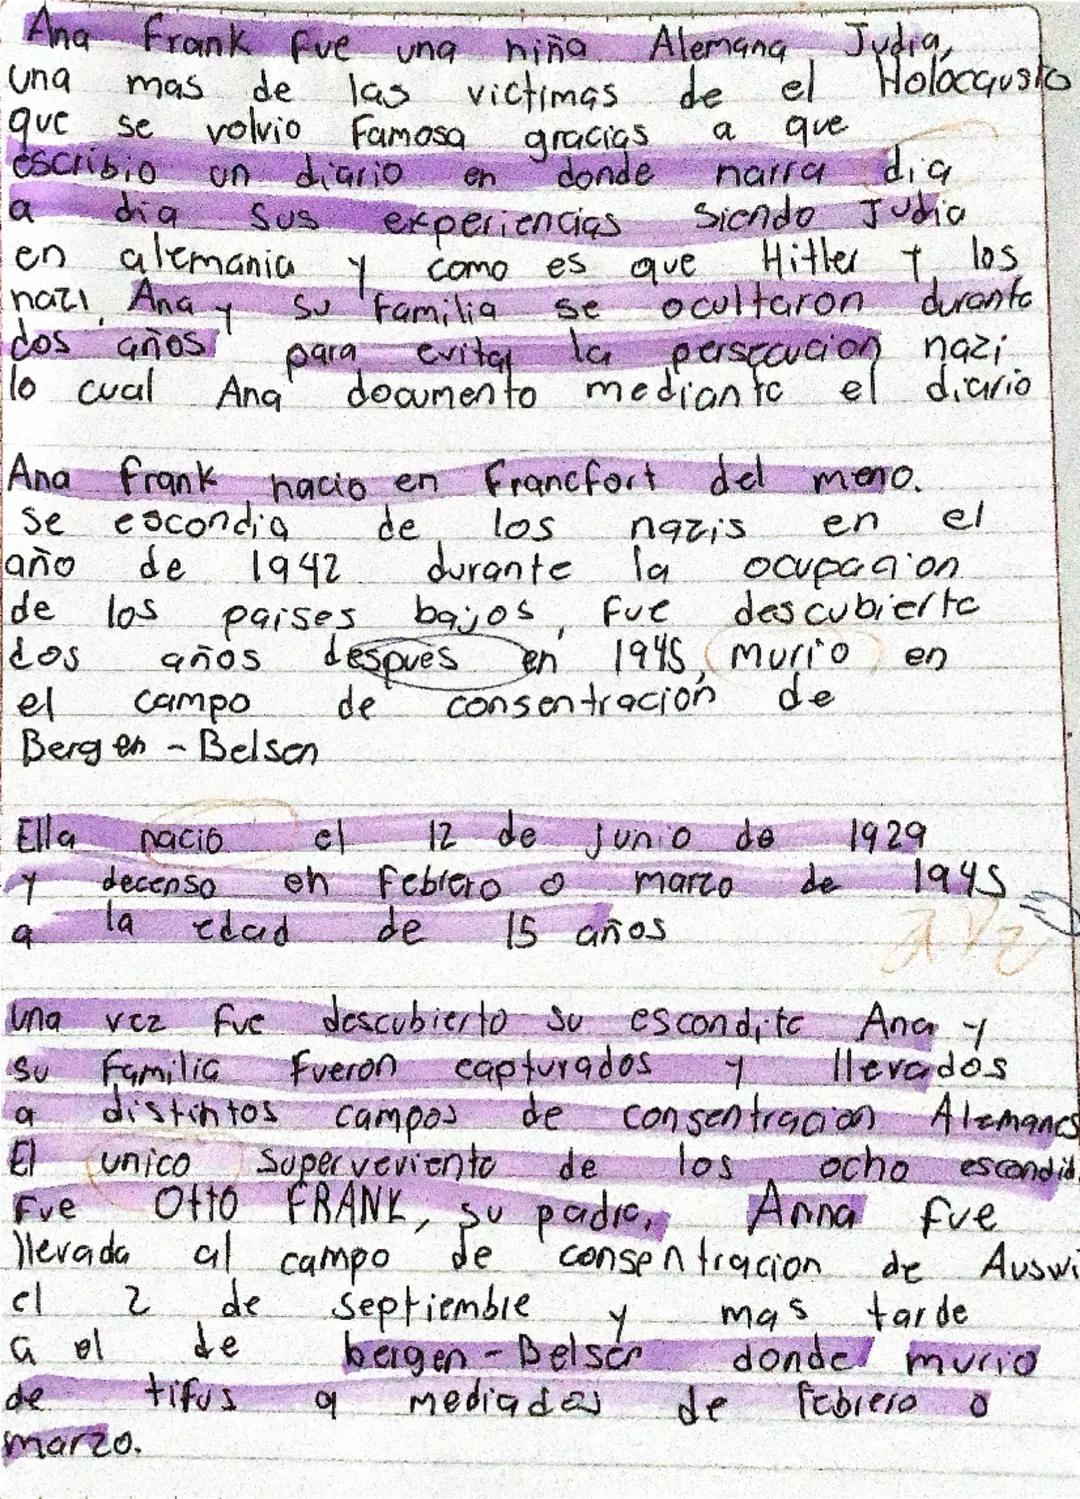 Ana Frank fue una niña Alemana Judia,
una mas de las victimas de el Holocausto
que se volvio Famosa gracias a que
escribio un diario en donde narra dia
a dia sus experiencias siendo Judia
en alemania y como es que Hitler y los
nazi, Ana y su Familia se ocultaron durante
dos años para evitar la persecucion nazi
lo cual Ana documento mediante el diario
Ana Frank nacio en Francfort del meno.
se escondia de los nazis en el
año de 1942 durante la ocupacion
de los paises bajos, fue descubierta
dos años despues en 1945, murio en
el campo de consentración de
Bergen - Belsen
Ella nacio el 12 de Junio de 1929
y decenso en Febrero o marzo de 1945
a la edad de 15 años
una vez fue descubierto su escondite Ana y
su Familia fueron capturados y llevados
a distintos campos de consentracion Alemanes
El unico Superveviente de los ocho escondid
Fue Otto FRANK, su padre, Anna fue
llevada al campo de consentracion de Auswi
el 2 de septiembre y mas tarde
a el de bergen - Belsen donde murio
de tifus a mediados de Febrero o
marzo.